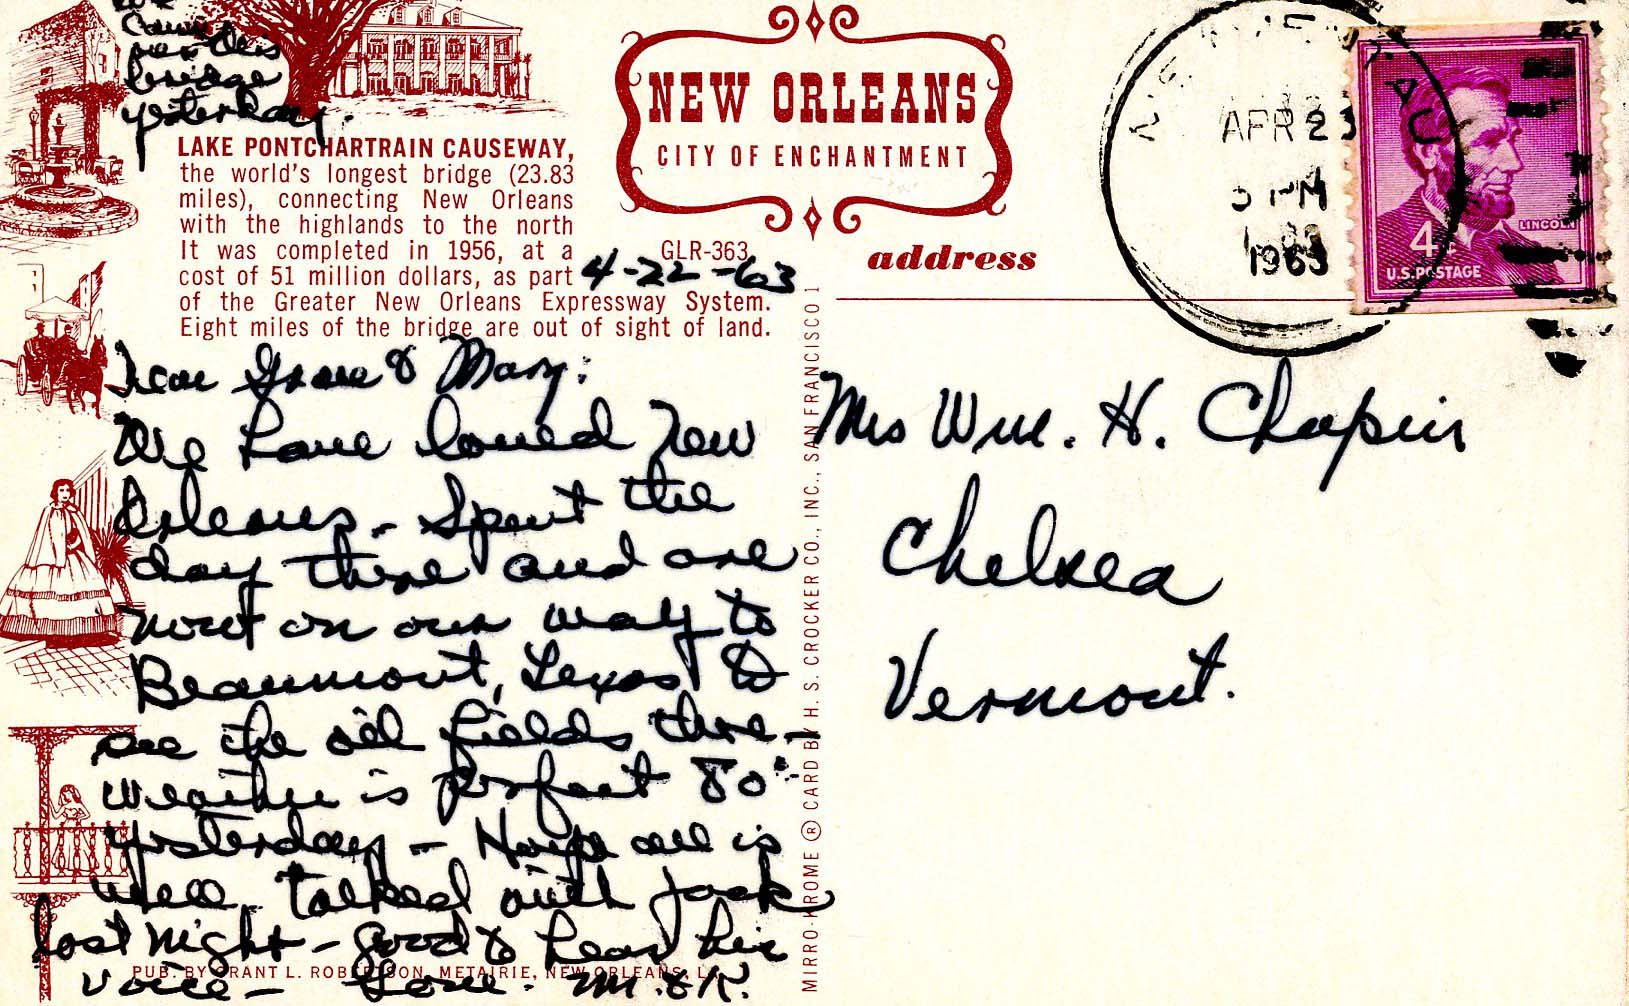 We
came
over this
bridge
yesterday.
LAKE PONTCHARTRAIN CAUSEWAY,
the world's longest bridge (23.83
miles), connecting New Orleans
with the highlands to the north
It was completed in 1956, at a
cost of 51 million dollars, as part
of the Greater New Orleans Expressway System.
Eight miles of the bridge are out of sight of land.
NEW ORLEANS
CITY OF ENCHANTMENT
GLR-363
4-22-63
address
APR 23
5 PM
1963
LINCOLN
4¢
U.S. POSTAGE
Dear Grace & Mary:
We have loved New
Orleans - Spent the
day there and are
now on our way to
Beaumont, Texas to
see the oil fields there -
weather is perfect 80°
yesterday - Hope all is
well. talked with Jack
last night - good to hear his
voice - Love. M. & K.
PUB. BY GRANT L. ROBERTSON, METAIRIE, NEW ORLEANS, LA.
MIRRO-KROME ® CARD BY H. S. CROCKER CO., INC., SAN FRANCISCO 1
Mrs Wm. H. Chapin
Chelsea
Vermont.